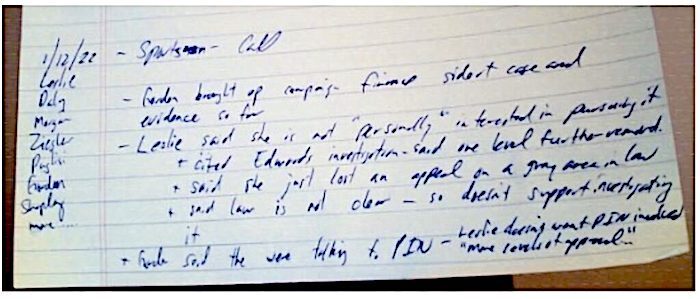 1/12/22 - Sportsman - Call
Leslie
Daly
Morgan
Ziegler
Puglisi
Gordon
Shapley
more.....
- Gordon brought up campaign finance sidort case and
evidence so far
- Leslie said she is not "personally" interested in pursuing it
+ cited Edwards investigation - said one level further removed.
+ said she just lost an appeal on a gray area in law
+ said law is not clear - so doesn't support investigating
it
+ said the were talking to PIN - Leslie doesn't want PIN involved
"more levels of approval"